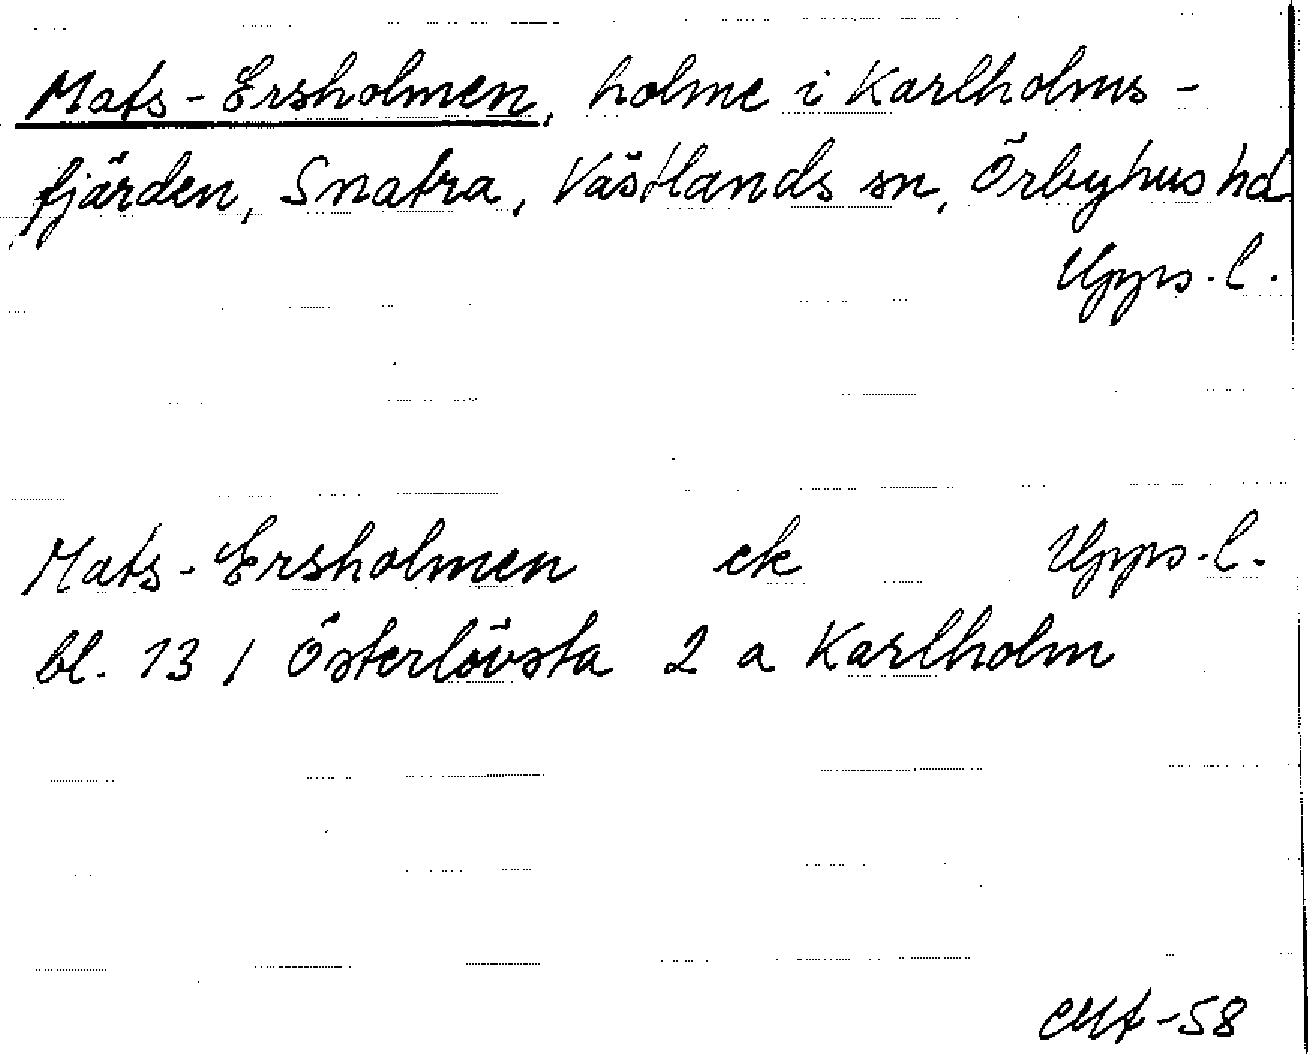 Mats-Ersholmen, holme i Karlholms-
fjärden, Snatra, Västlands sn, Örbyhus hd
Upps. l.
Mats-Ersholmen ek Upps. l.
bl. 13 / Österlövsta 2 a Karlholm